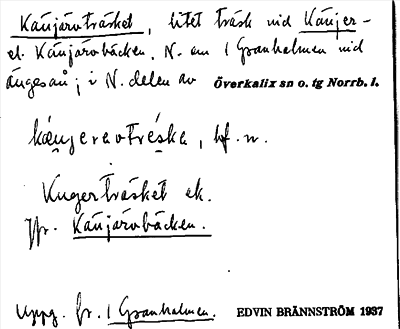 Käujärvträsket, litet träsk vid Käujer-
el. Käujärvbäcken, N. om 1 Granholmen vid
Ängesån; i N. delen av Överkalix sn o. tg Norrb. l.
träska, bf. n.
Kugerträsket ek.
Jfr. Käujärvbäcken.
Uppg. fr. 1 Granholmen. EDVIN BRÄNNSTRÖM 1937